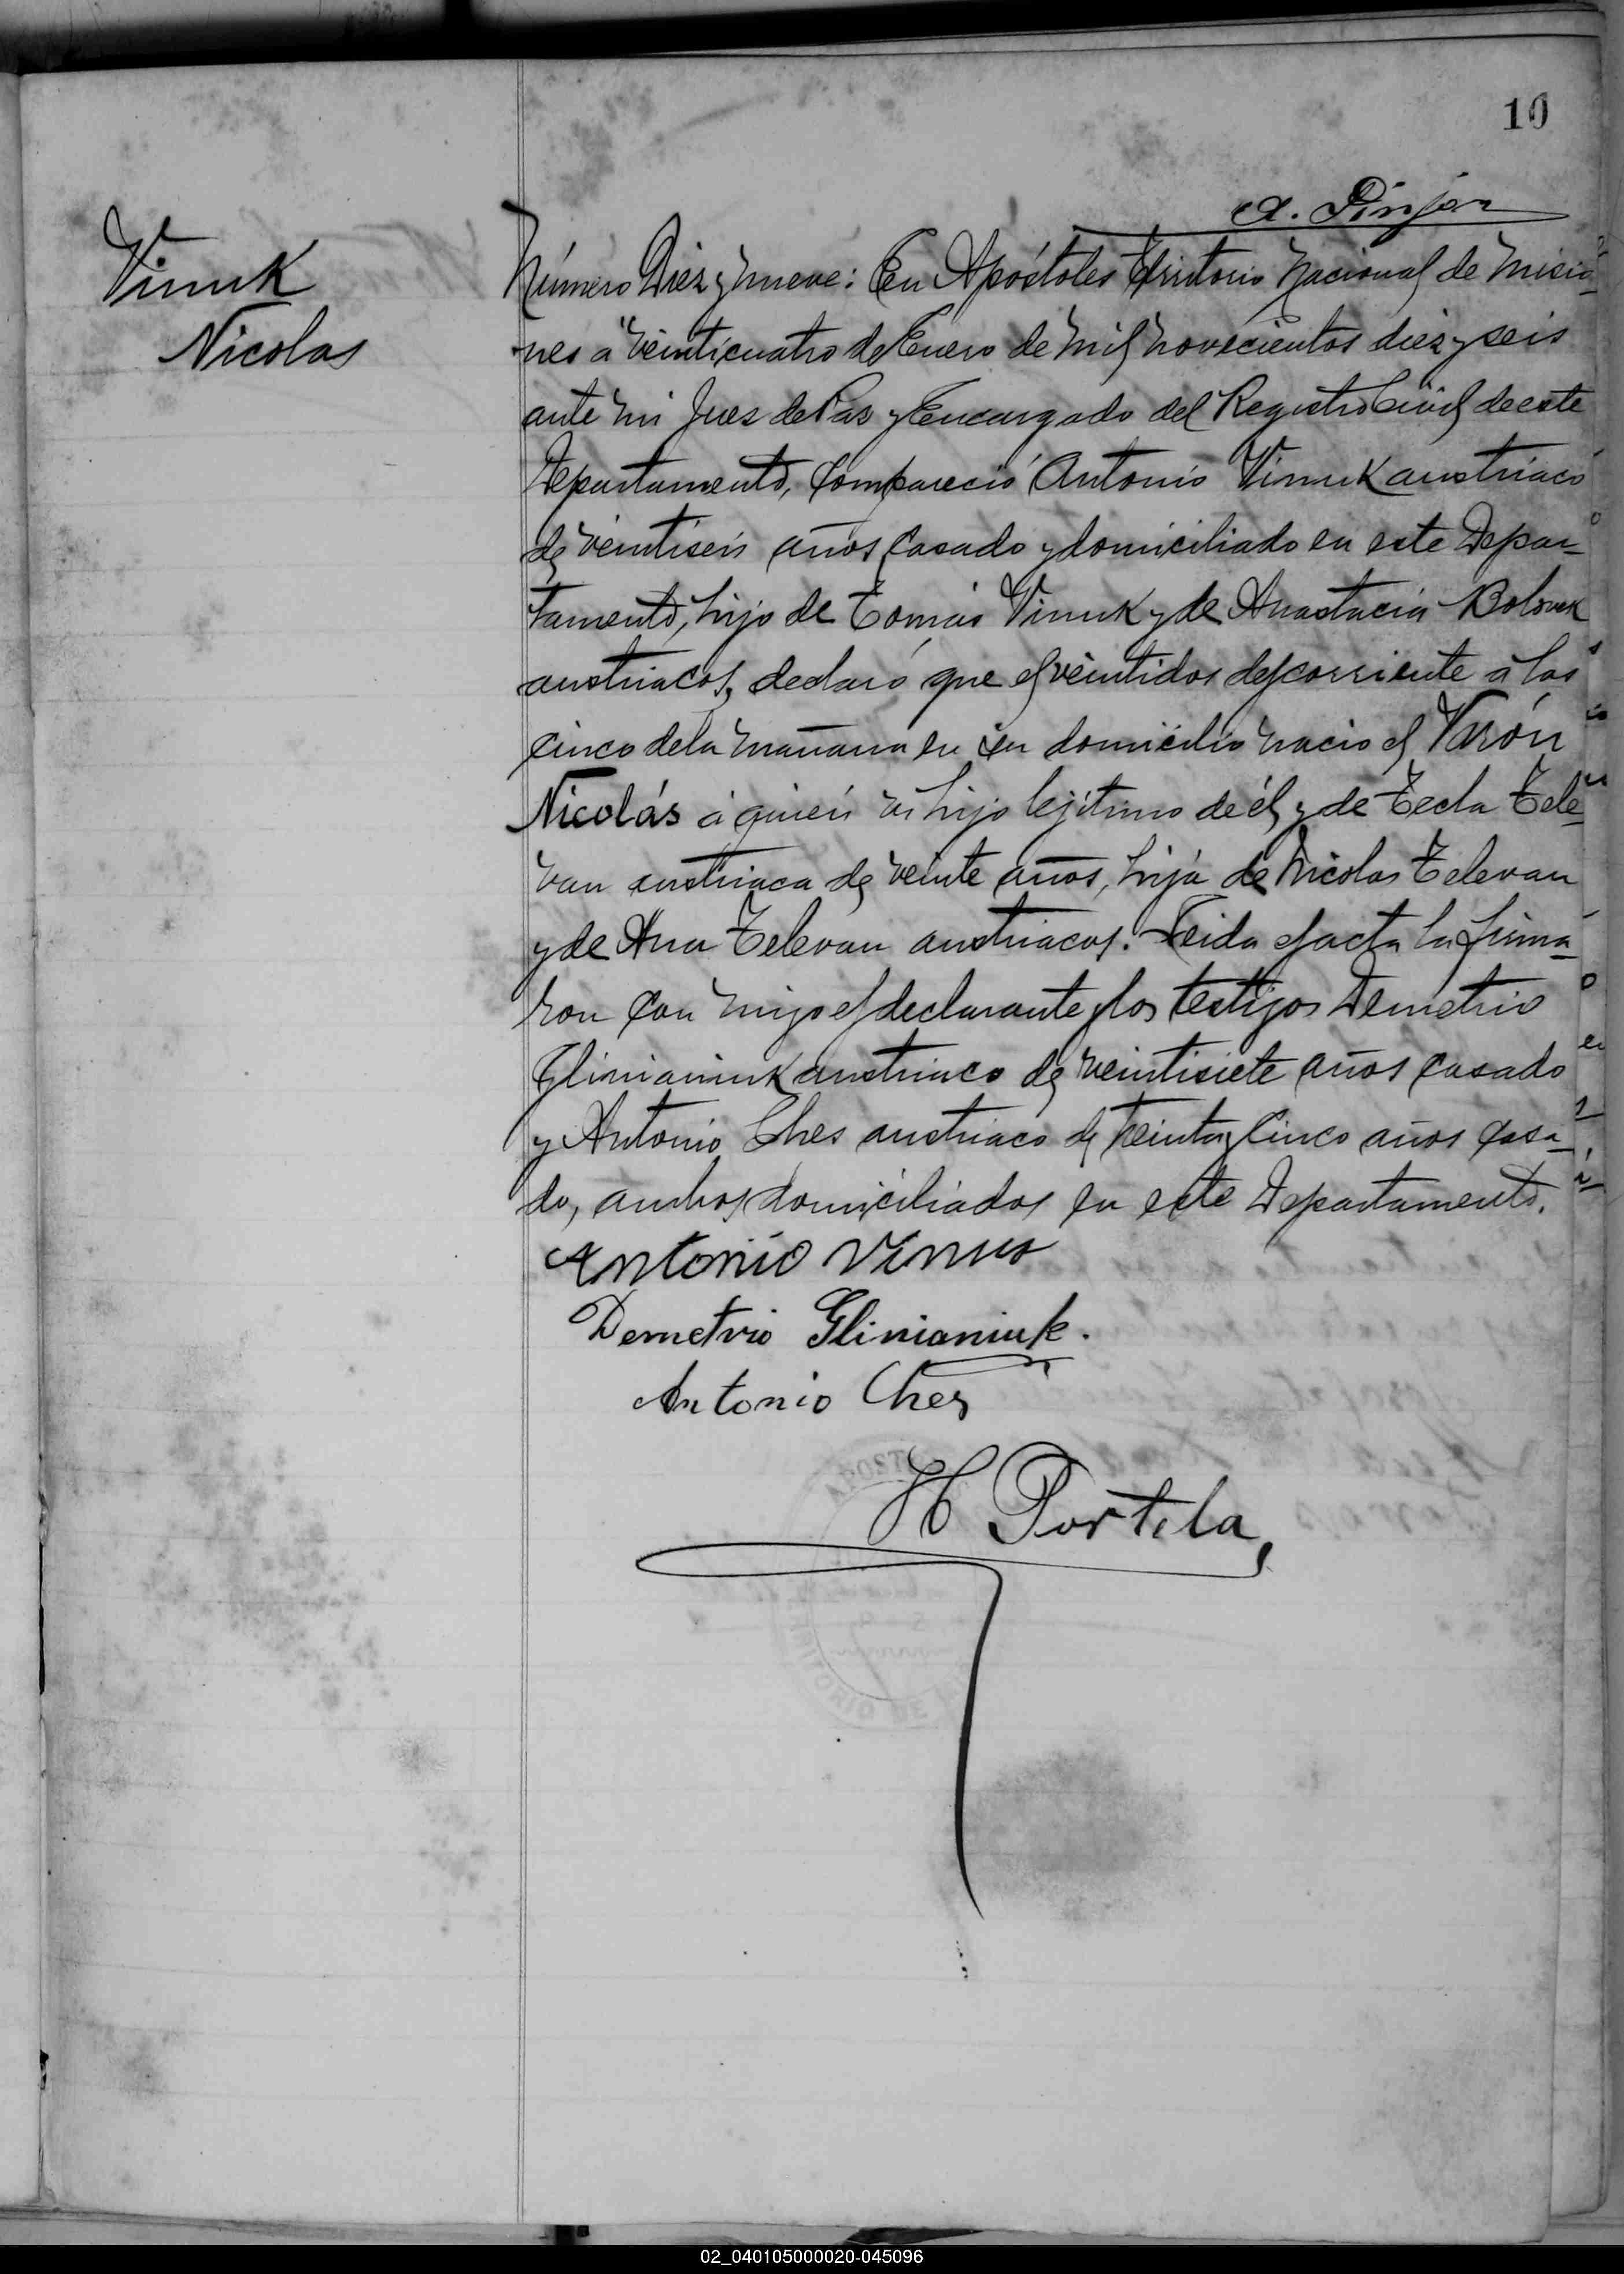 10
A. Pinjon
Vinuk
Nicolas
Número Diez y nueve: En Apóstoles Territorio Nacional de Misio-
nes a veinticuatro de Enero de mil novecientos diez y seis
ante mi Juez de Paz y Encargado del Registro Civil de este
Departamento, Compareció Antonio Vinuk austriaco
de veintiseis años, casado y domiciliado en este Depar-
tamento, hijo de Tomás Vinuk y de Anastacia Bolouk
austriacos, declaró que el veintidos del corriente á las
cinco de la mañana en su domicilio nació el Varón
Nicolás á quien es hijo lejítimo de él y de Tecla Tele-
van austriaca de veinte años, hija de Nicolas Televan
y de Ana Televan austriacos. Leida el acta la firma-
ron con migo el declarante y los testigos Demetrio
Glinianiuk austriaco de veintisiete años casado
y Antonio Ches austriaco de treinta y cinco años casa-
do, ambos domiciliados en este Departamento.
Antonio Vinus
Demetrio Glinianiuk.
Antonio Ches
H Portela,
02_040105000020-045096